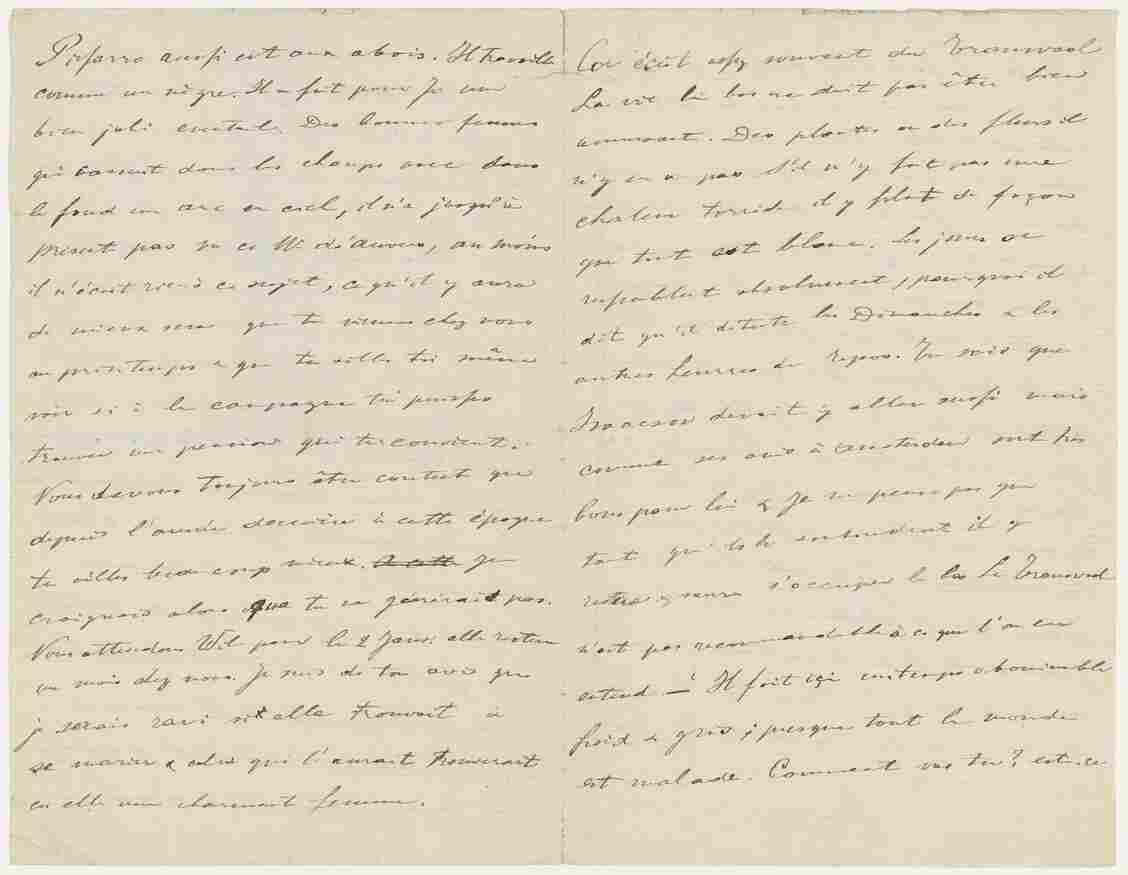 Pissarro aussi est aux abois. Il travaille
comme un nègre. Il a fait pour Jo un
bien joli éventail. Des bonnes femmes
qui causent dans les champs avec dans
le fond un arc en ciel, il n'a jusqu'à
présent pas vu ce Mr d'Auvers, au moins
il n'écrit rien à ce sujet, ce qu'il y aura
de mieux sera que tu viennes chez nous
au printemps & que tu ailles toi même
voir si à la campagne tu puisses
trouver une pension qui te convient.
Nous devons toujours être content que
depuis l'année dernière à cette époque
tu ailles beaucoup mieux. A cette Je
craignais alors que tu ne guérirais pas.
Nous attendons Wil pour le 2 Janv. elle restera
un mois chez nous. Je suis de ton avis que
je serais ravi si elle trouvait à
se marier & celui qui l'aurait trouverait
en elle une charmante femme.
Cor écrit assez souvent du Transvaal
La vie là bas ne doit pas être bien
amusant. Des plantes ou des fleurs il
n'y en a pas S'il n'y fait pas une
chaleur torride il y pleut de façon
que tout est blanc. Les jours se
ressemblent absolument, pourquoi il
dit qu'il déteste les Dimanches & les
autres heures de repos. Tu sais que
Isaacson devait y aller aussi mais
comme ses amis à Amsterdam sont très
bons pour lui & Je ne pense pas que
tant qu'ils le soutiendront il y
restera y aura s'occuper là bas Le Transvaal
n'est pas recommandable à ce que l'on en
entend – Il fait ici un temps abominable
froid & gris & presque tout le monde
est malade. Comment vas tu? est-ce